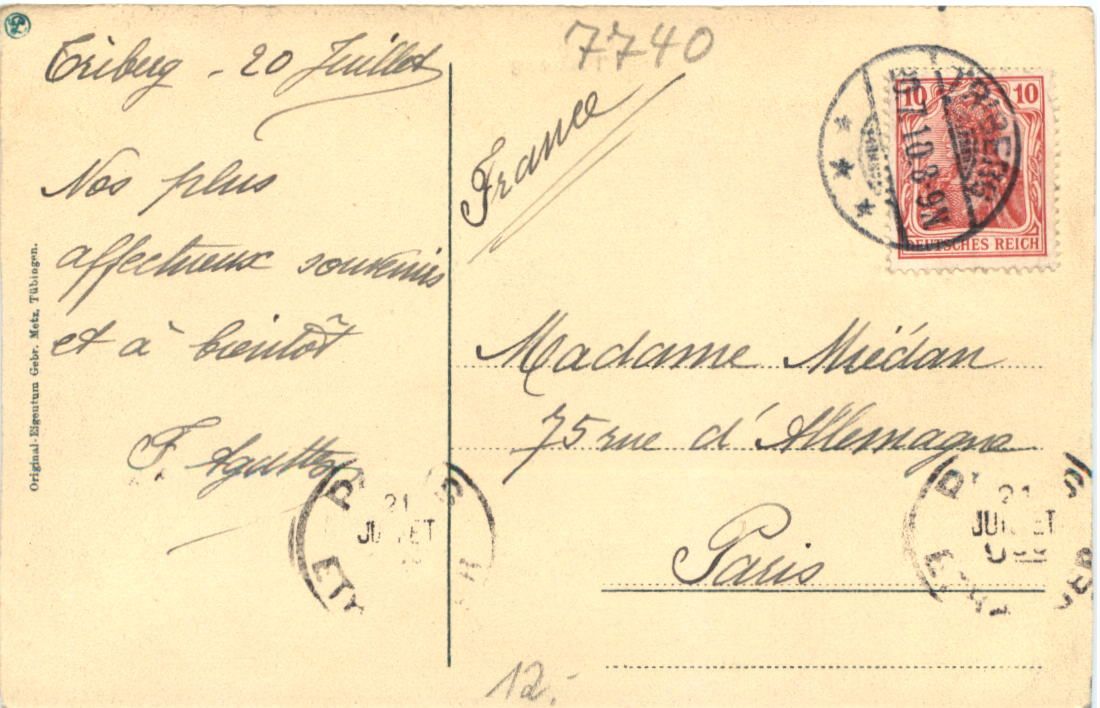 7740
Triberg - 20 Juillet
Nos plus
affectueux souvenirs
et à bientôt
France
10 10
TRIBERG
7.10.8-9N
DEUTSCHES REICH
Madame Miédan
75 rue d'Allemagne
Paris
PARIS
21
JUILLET
PARIS
21
JUILLET
Original-Eigentum Gebr. Metz, Tübingen.
12.-